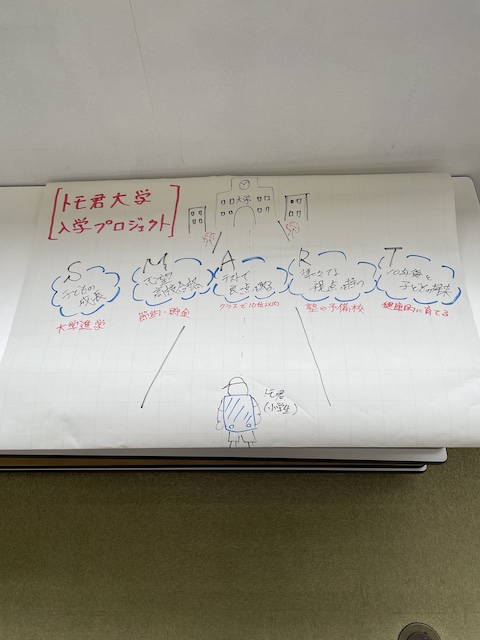 [トモ君大学
入学プロジェクト]
大学
S M A R T
子どもの
成長
志望
高校合格
テストで
良い点を取る
視点を持つ
10年後を
大学進学
節約・貯金
クラスで10位以内
塾や予備校
健康的に育てる
トモ君
(小学生)